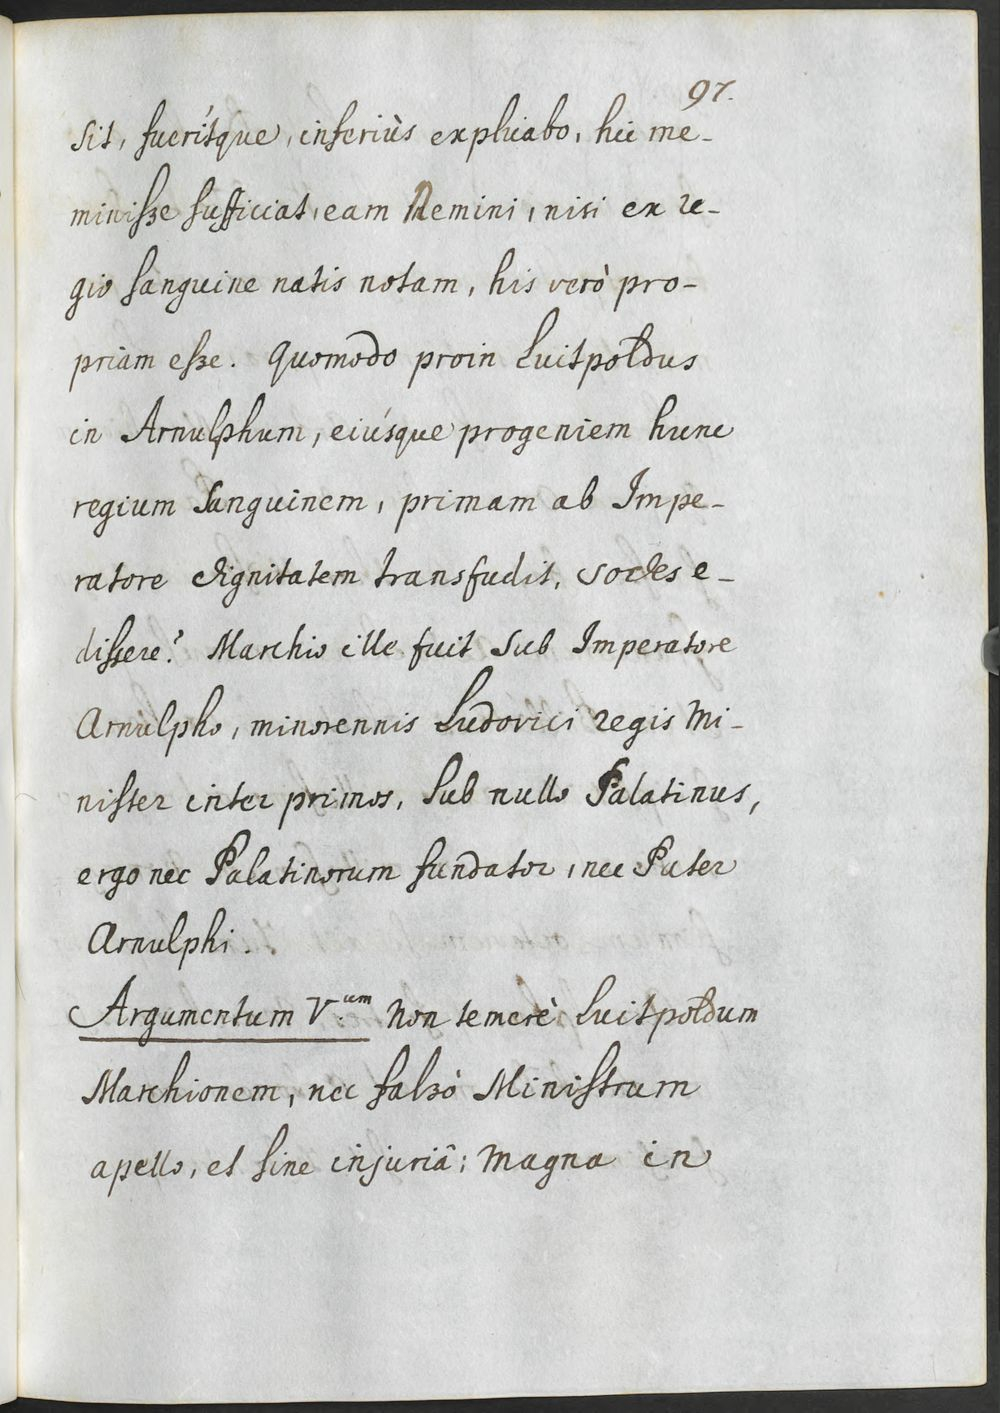 97.
sit, fueritque, inferiùs explicabo, hìc me-
minisse sufficiat, eam Nemini, nisi ex re-
gio sanguine natis notam, his verò pro-
priam esse. Quomodo proin Luitpoldus
in Arnulphum, eiúsque progeniem hunc
regium sanguinem, primam ab Impe-
ratore dignitatem transfudit, sodes e-
dissere? Marchio ille fuit sub Imperatore
Arnulpho, minorennis Ludovici regis Mi-
nister inter primos, sub nullo Palatinus,
ergo nec Palatinorum fundator, nec Pater
Arnulphi.
Argumentum V.um Non temerè Luitpoldum
Marchionem, nec falsò Ministrum
apello, et sine injuriâ; magna in